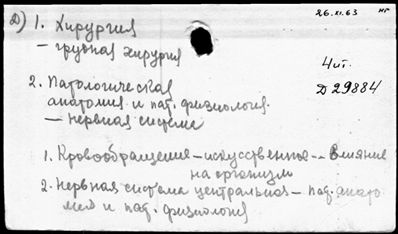 26.XI.63 нг
Д) 1. Хирургия
– грудная хирургия
4 ит.
Д 29884
2. Патологическая
анатомия и пат. физиология.
– нервная система
1. Кровообращение – искусственное -- влияние
на организм
2. Нервная система центральная – пат. анато
мия и пат. физиология